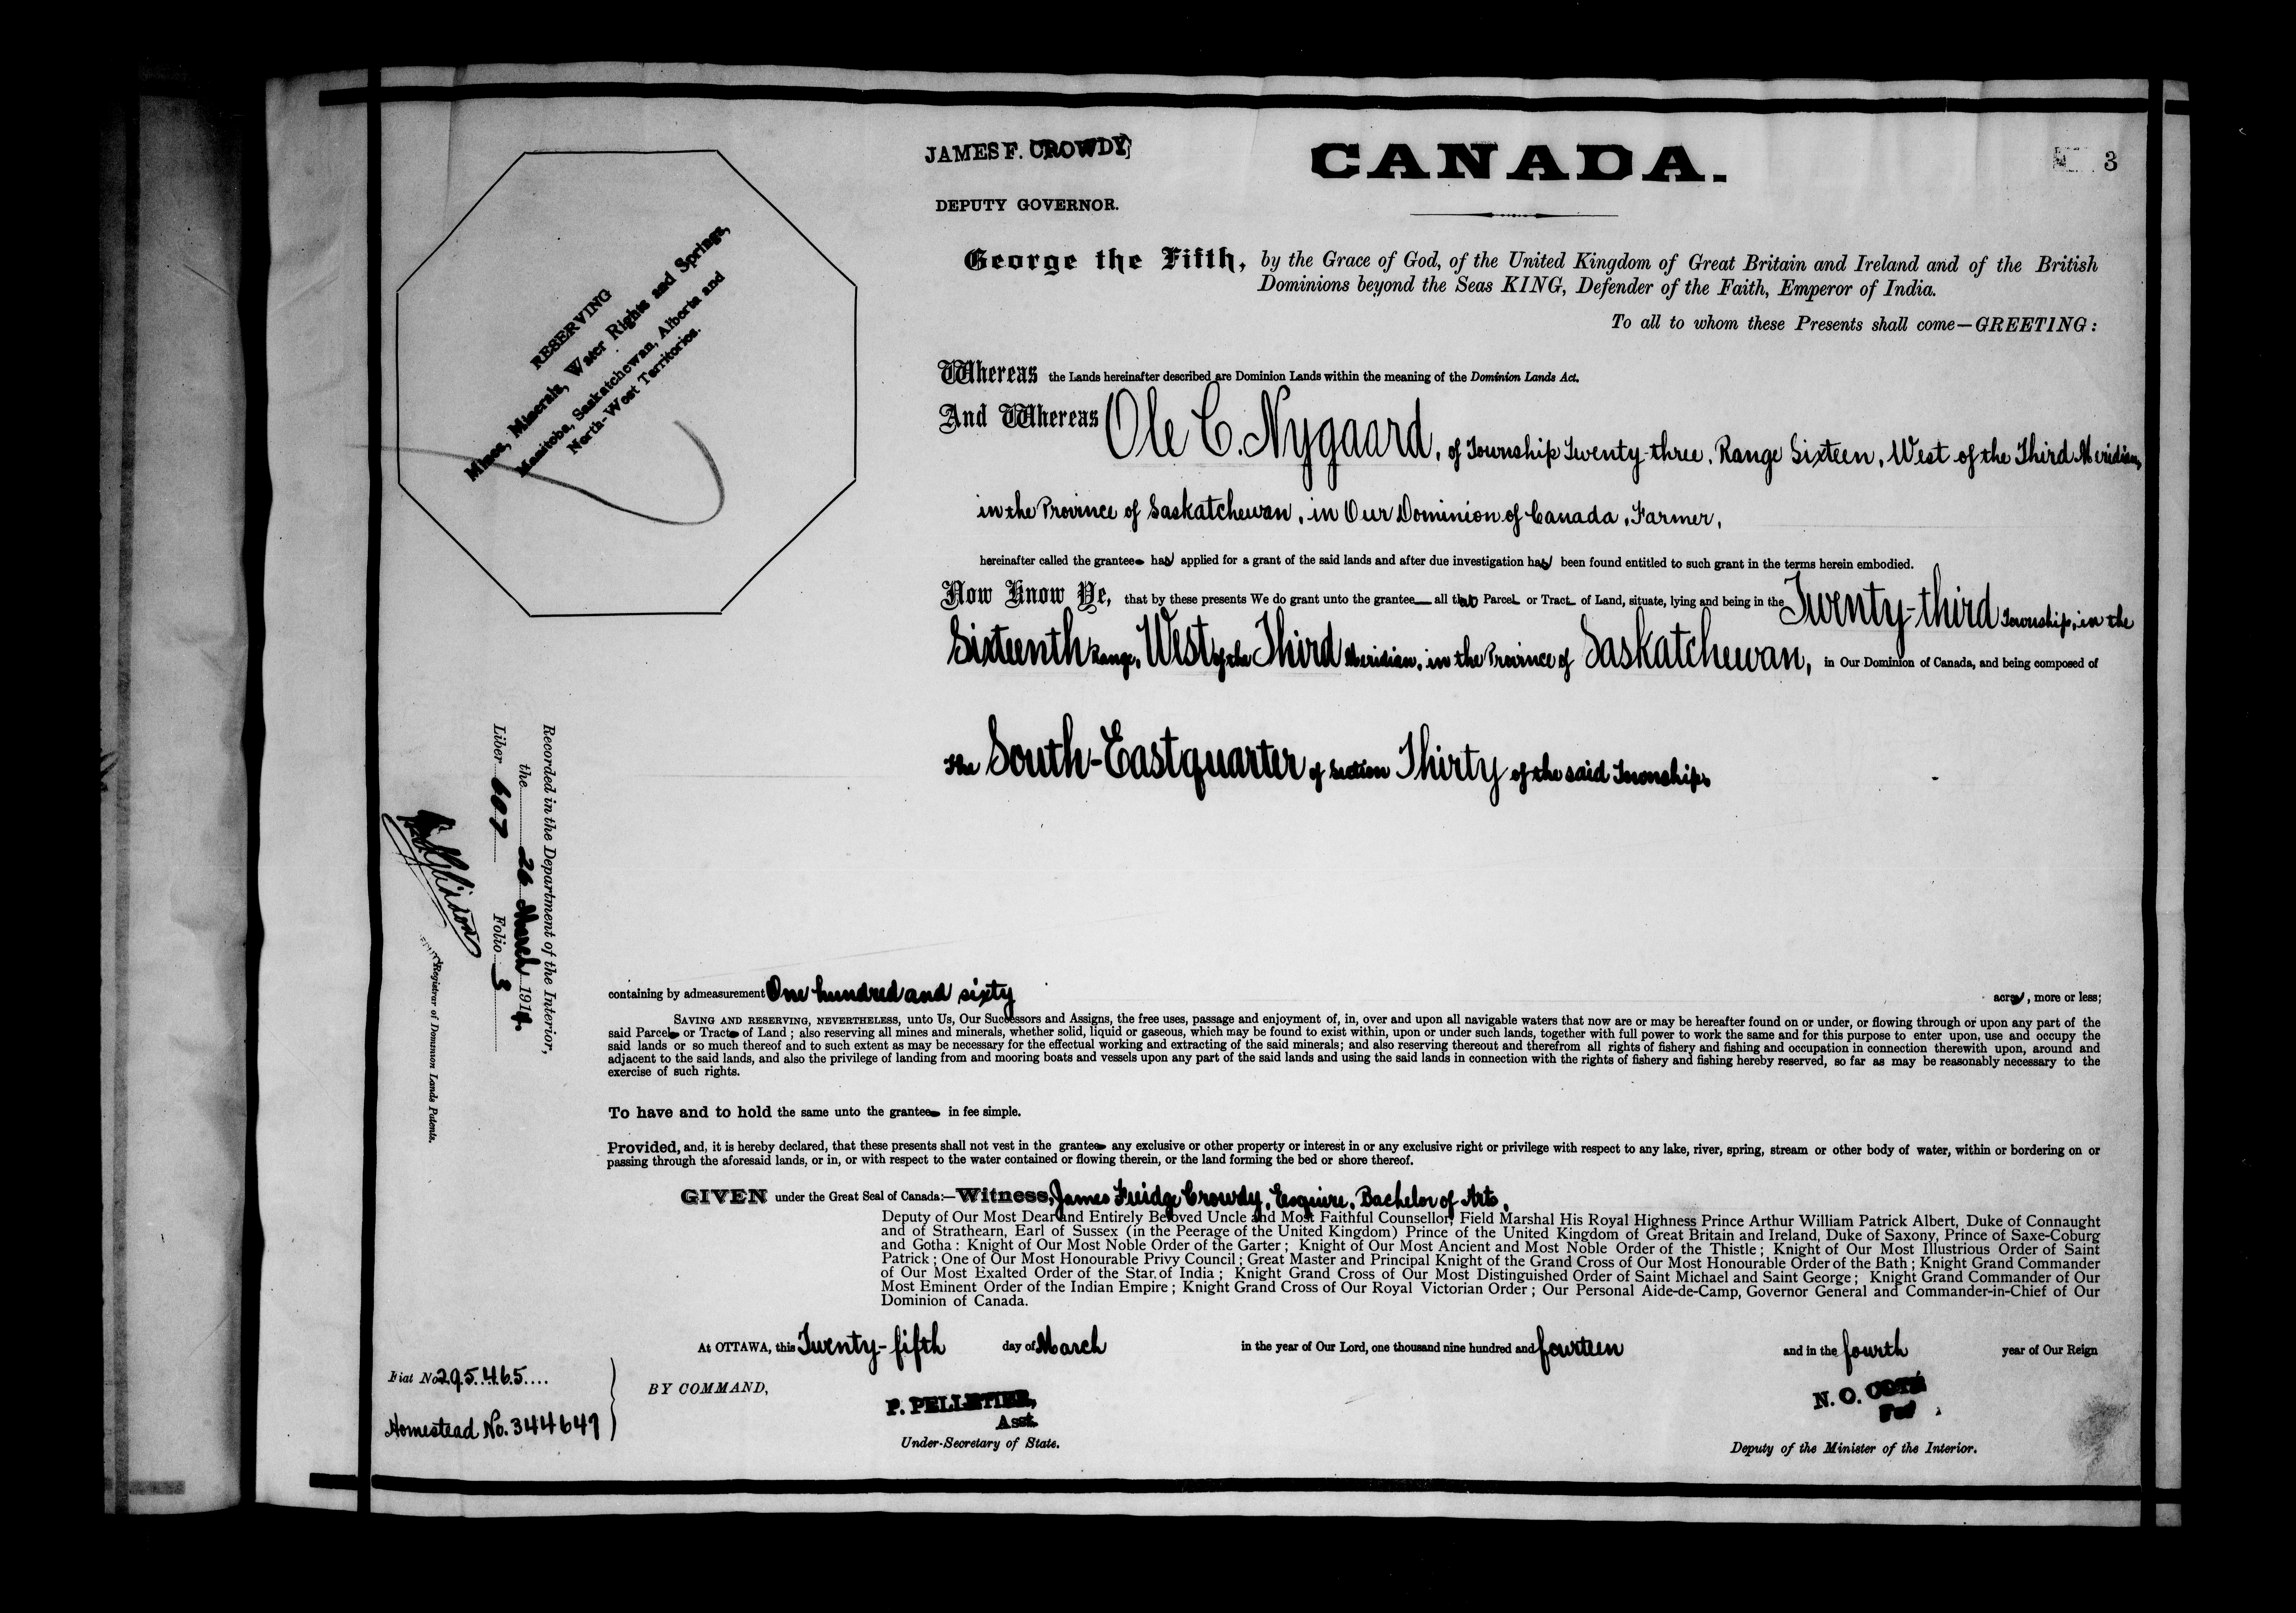 JAMES F. CROWDY
DEPUTY GOVERNOR.
CANADA.
3
RESERVING
Mines, Minerals, Water Rights and Springs,
Manitoba, Saskatchewan, Alberta and
North-West Territories.
George the Fifth, by the Grace of God, of the United Kingdom of Great Britain and Ireland and of the British
Dominions beyond the Seas KING, Defender of the Faith, Emperor of India.
To all to whom these Presents shall come—GREETING:
Whereas the Lands hereinafter described are Dominion Lands within the meaning of the Dominion Lands Act.
And Whereas Ole C. Nygaard, of Township Twenty-three, Range Sixteen, West of the Third Meridian,
in the Province of Saskatchewan, in Our Dominion of Canada, Farmer,
hereinafter called the grantee has applied for a grant of the said lands and after due investigation has been found entitled to such grant in the terms herein embodied.
Now Know Ye, that by these presents We do grant unto the grantee all that Parcel or Tract of Land, situate, lying and being in the Twenty-third Township, in the
Sixteenth Range, West of the Third Meridian, in the Province of Saskatchewan, in Our Dominion of Canada, and being composed of
the South-East quarter of Section Thirty of the said Township.
Recorded in the Department of the Interior,
the 26 March 1914.
Liber 607 Folio 3
Registrar of Dominion Lands Patents.
containing by admeasurement One hundred and sixty acres, more or less;
SAVING AND RESERVING, NEVERTHELESS, unto Us, Our Successors and Assigns, the free uses, passage and enjoyment of, in, over and upon all navigable waters that now are or may be hereafter found on or under, or flowing through or upon any part of the
said Parcel or Tract of Land; also reserving all mines and minerals, whether solid, liquid or gaseous, which may be found to exist within, upon or under such lands, together with full power to work the same and for this purpose to enter upon, use and occupy the
said lands or so much thereof and to such extent as may be necessary for the effectual working and extracting of the said minerals; and also reserving thereout and therefrom all rights of fishery and fishing and occupation in connection therewith upon, around and
adjacent to the said lands, and also the privilege of landing from and mooring boats and vessels upon any part of the said lands and using the said lands in connection with the rights of fishery and fishing hereby reserved, so far as may be reasonably necessary to the
exercise of such rights.
To have and to hold the same unto the grantee in fee simple.
Provided, and, it is hereby declared, that these presents shall not vest in the grantee any exclusive or other property or interest in or any exclusive right or privilege with respect to any lake, river, spring, stream or other body of water, within or bordering on or
passing through the aforesaid lands, or in, or with respect to the water contained or flowing therein, or the land forming the bed or shore thereof.
GIVEN under the Great Seal of Canada:—Witness, James Fuidge Crowdy, Esquire, Bachelor of Arts,
Deputy of Our Most Dear and Entirely Beloved Uncle and Most Faithful Counsellor, Field Marshal His Royal Highness Prince Arthur William Patrick Albert, Duke of Connaught
and of Strathearn, Earl of Sussex (in the Peerage of the United Kingdom) Prince of the United Kingdom of Great Britain and Ireland, Duke of Saxony, Prince of Saxe-Coburg
and Gotha: Knight of Our Most Noble Order of the Garter; Knight of Our Most Ancient and Most Noble Order of the Thistle; Knight of Our Most Illustrious Order of Saint
Patrick; One of Our Most Honourable Privy Council; Great Master and Principal Knight of the Grand Cross of Our Most Honourable Order of the Bath; Knight Grand Commander
of Our Most Exalted Order of the Star of India; Knight Grand Cross of Our Most Distinguished Order of Saint Michael and Saint George; Knight Grand Commander of Our
Most Eminent Order of the Indian Empire; Knight Grand Cross of Our Royal Victorian Order; Our Personal Aide-de-Camp, Governor General and Commander-in-Chief of Our
Dominion of Canada.
At OTTAWA, this Twenty-fifth day of March in the year of Our Lord, one thousand nine hundred and fourteen and in the fourth year of Our Reign
Fiat No 295465....
Homestead No. 344647
BY COMMAND,
P. PELLETIER,
Asst.
Under-Secretary of State.
N. O. COTÉ
For
Deputy of the Minister of the Interior.